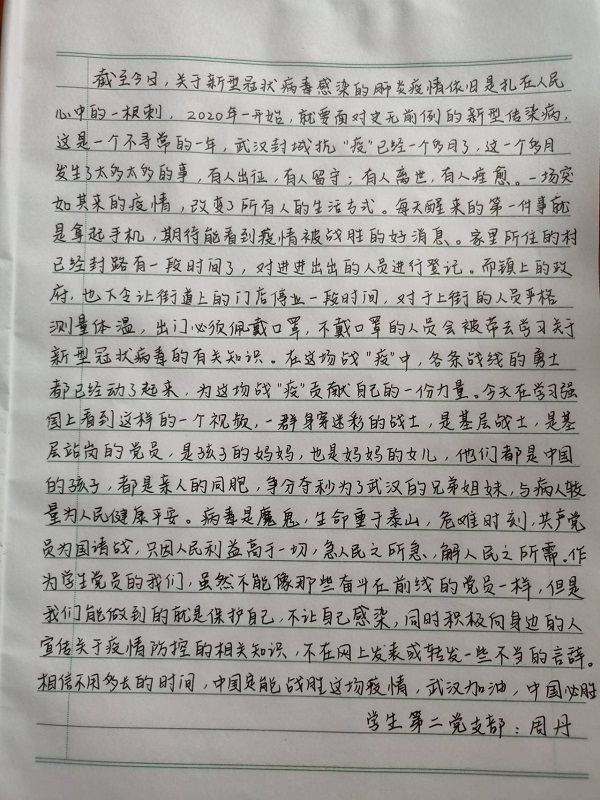 截至今日,关于新型冠状病毒感染的肺炎疫情依旧是扎在人民
心中的一根刺,2020年一开始,就要面对史无前例的新型传染病,
这是一个不寻常的一年,武汉封城抗"疫"已经一个多月了,这一个多月
发生了太多太多的事,有人出征,有人留守;有人离世,有人痊愈。一场突
如其来的疫情,改变了所有人的生活方式。每天醒来的第一件事就
是拿起手机,期待能看到疫情被战胜的好消息。家里所住的村
已经封路有一段时间了,对进进出出的人员进行登记。而镇上的政
府,也下令让街道上的门店停业一段时间,对于上街的人员严格
测量体温,出门必须佩戴口罩,不戴口罩的人员会被带去学习关于
新型冠状病毒的有关知识。在这场战"疫"中,各条战线的勇士
都已经动了起来,为这场战"疫"贡献自己的一份力量。今天在学习强
国上看到这样的一个视频,一群身穿迷彩的战士,是基层战士,是基
层站岗的党员,是孩子的妈妈,也是妈妈的女儿,他们都是中国
的孩子,都是亲人的同胞,争分夺秒为了武汉的兄弟姐妹,与病人较
量为人民健康平安。病毒是魔鬼,生命重于泰山,危难时刻,共产党
员为国请战,只因人民利益高于一切,急人民之所急、解人民之所需。作
为学生党员的我们,虽然不能像那些奋斗在前线的党员一样,但是
我们能做到的就是保护自己,不让自己感染,同时积极向身边的人
宣传关于疫情防控的相关知识,不在网上发表或转发一些不当的言辞。
相信不用多长的时间,中国定能战胜这场疫情,武汉加油,中国必胜
学生第二党支部:周丹